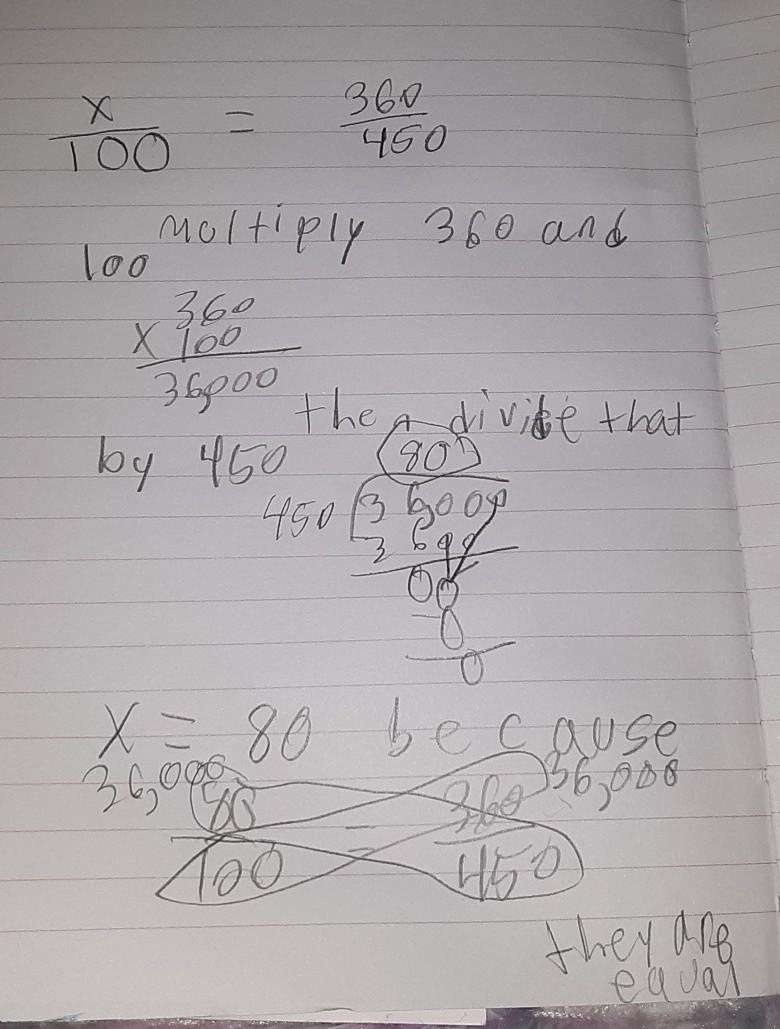 x/100 = 360/450
Multiply 360 and
100
360
x 100
36,000
then divide that
by 450
80
450 36000
3600
00
-0
0
X = 80 because
36,000 36,000
80/100 = 360/450
they are
equal